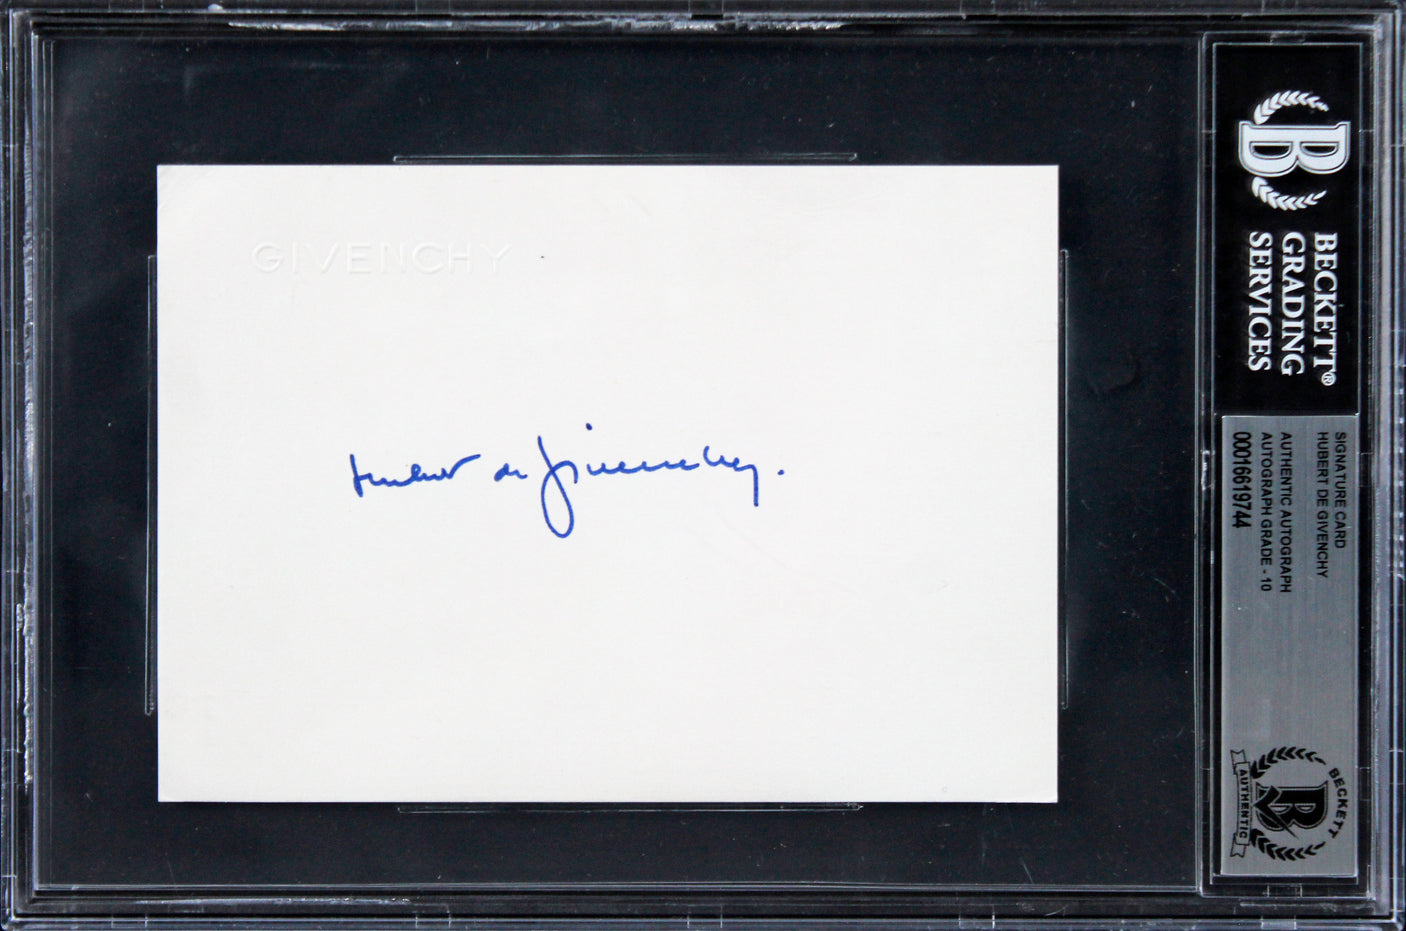 GIVENCHY
Hubert de Givenchy.
B
BECKETT®
GRADING
SERVICES
SIGNATURE CARD
HUBERT DE GIVENCHY
AUTHENTIC AUTOGRAPH
AUTOGRAPH GRADE - 10
00016619744
BECKETT
B
AUTHENTIC